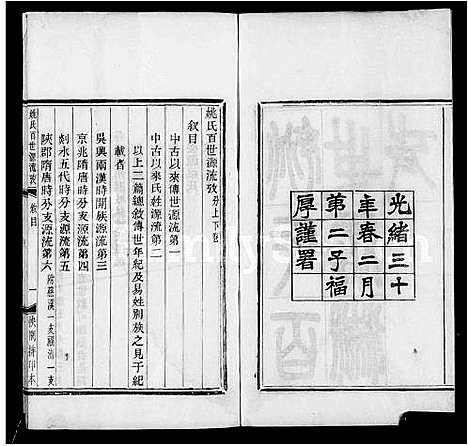 光緒三十
年春二月
第二子福
厚謹署
姚氏百世源流攷分上下卷
叙目
中古以來傳世源流第一
中古以來氏姓源流第二
以上二篇總敘傳世年紀及易姓別族之見于紀
載者
吳興兩漢時開族源流第三
京兆隋唐時分支源流第四
剡水五代時分支源流第五
陝郡隋唐時分支源流第六
姚氏百世源流攷
叙目
一